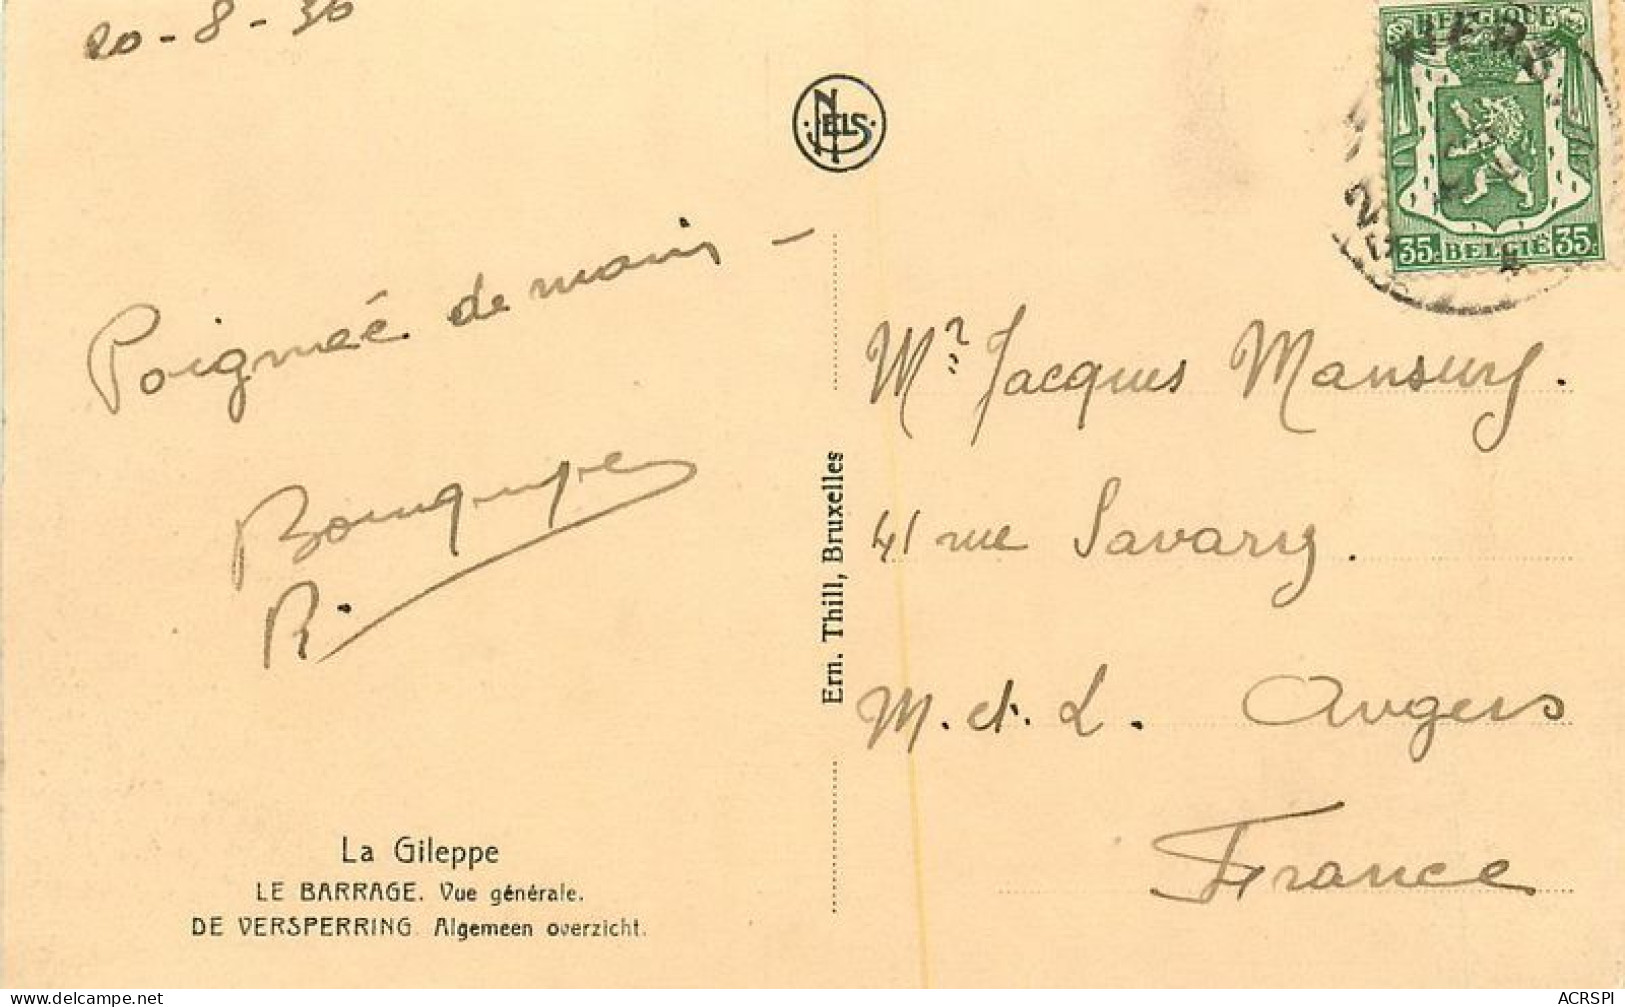 20-8-36
NELS
BELGIQUE
35c BELGIË 35c
Poignée de main -
R.
Ern. Thill, Bruxelles
Mr Jacques
41 rue Savary.
M. et. L. Angers
France
La Gileppe
LE BARRAGE. Vue générale.
DE VERSPERRING. Algemeen overzicht.
delcampe.net
ACRSPI